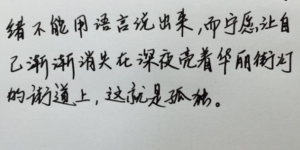 绪不能用语言说出来，而宁愿让自
己渐渐消失在深夜亮着华丽街灯
的街道上，这就是孤独。